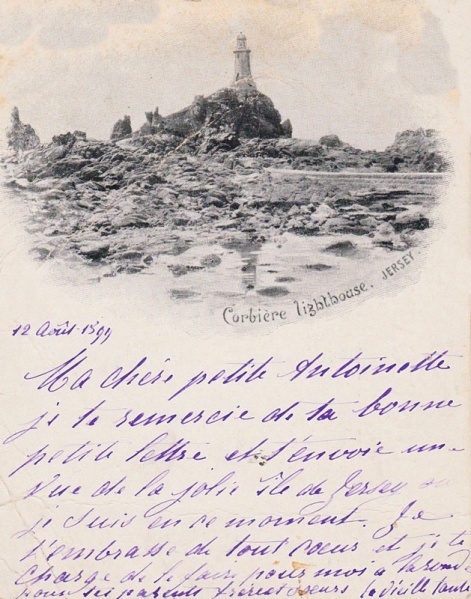 Corbière lighthouse. JERSEY.
12 Août 1899
Ma chère petite Antoinette
je te remercie de ta bonne
petite lettre et t'envoie une
vue de la jolie île de Jersey
je suis en ce moment. Je
t'embrasse de tout cœur et je te
charge de le faire pour moi à
pour tes parents frères et sœurs la vieille tante